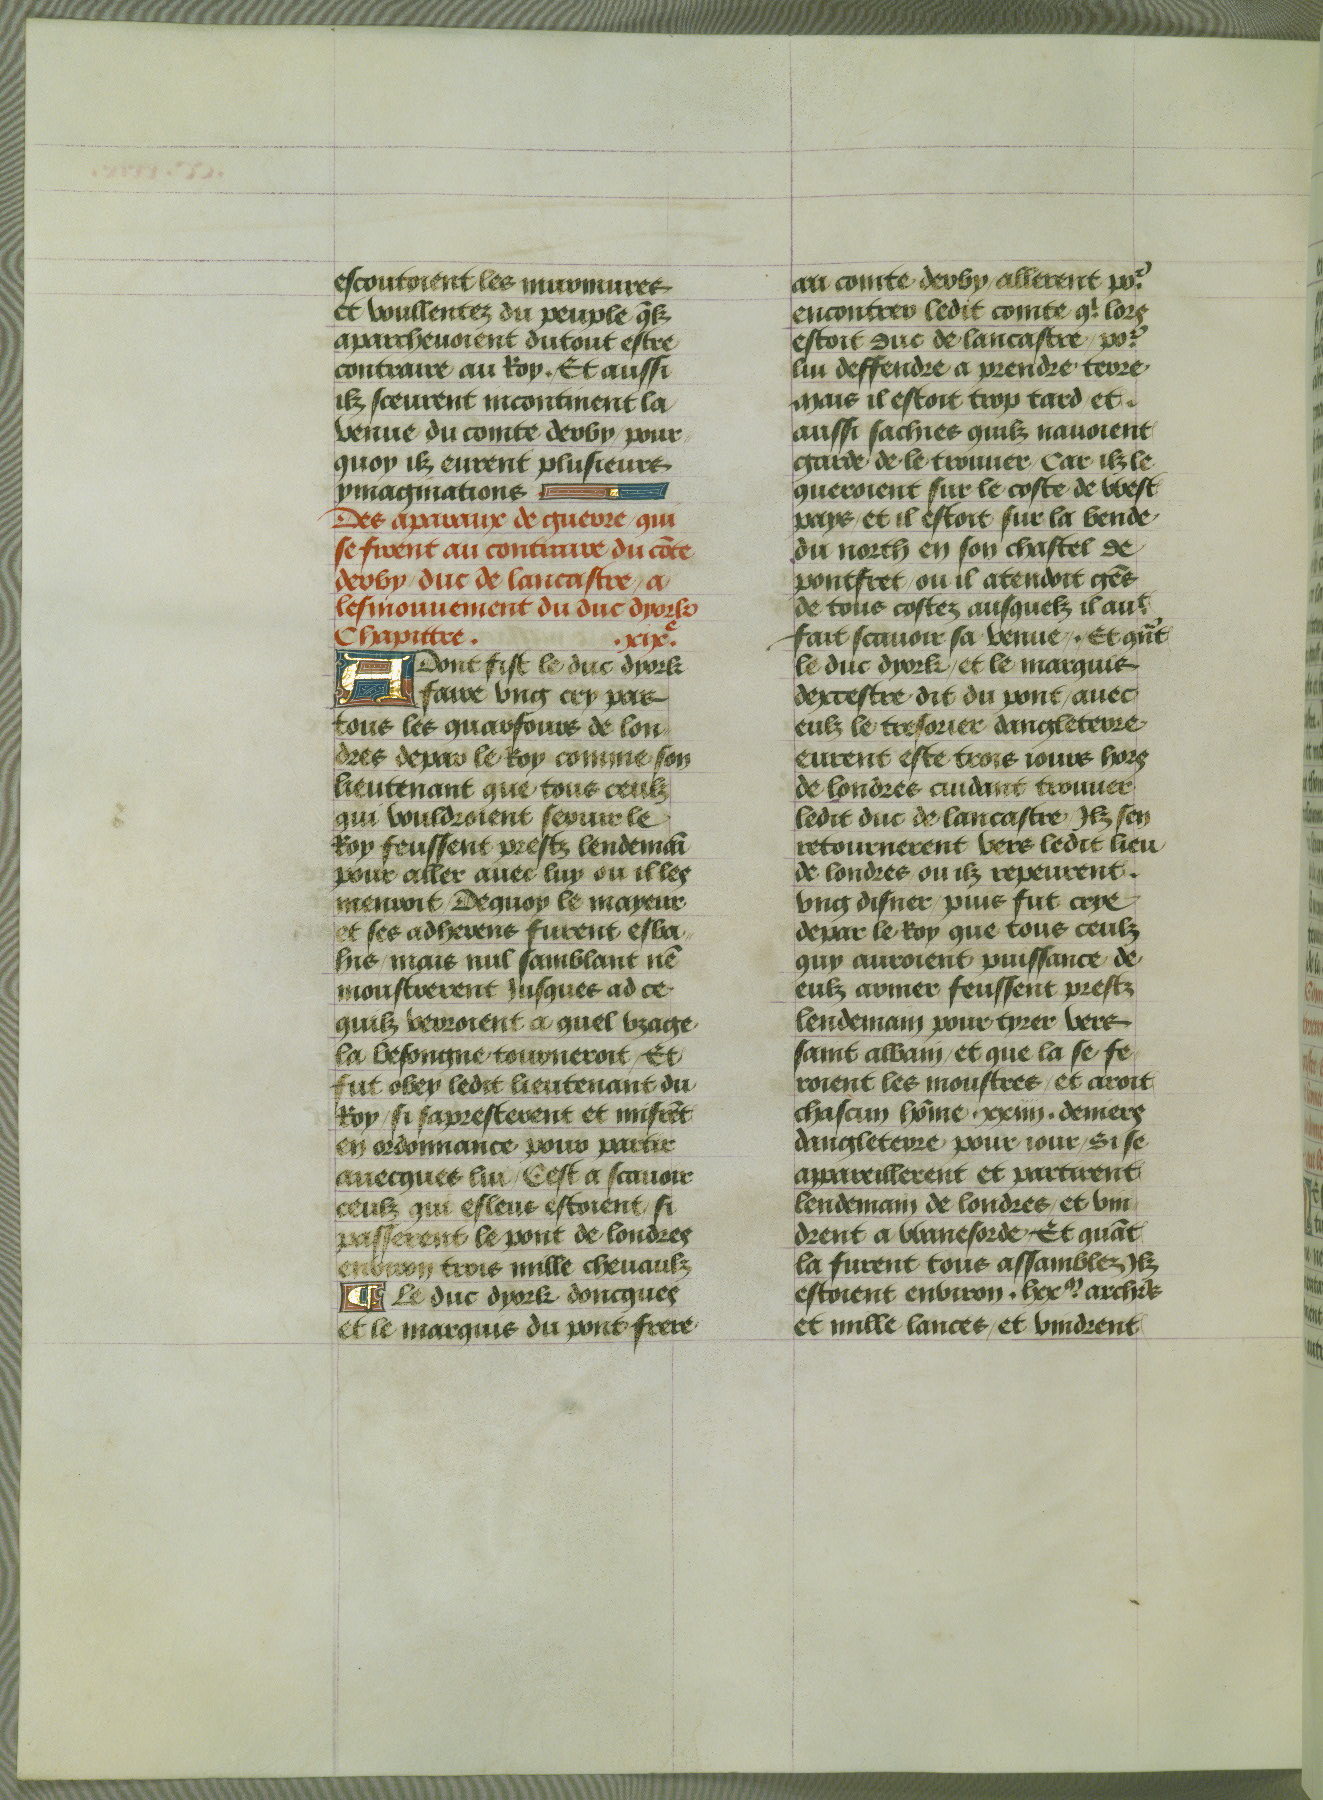 escoutoient les murmures
et voullentez du peuple qlz
aparchevoient du tout estre
contraire au Roy. Et aussi
ilz sceurent incontinent la
venue du comte derby pour
quoy ilz eurent plusieurs
ymaginations
Des aparaux de guerre qui
se firent au contraire du cōte
derby / duc de lancastre / a
lesmouuement du duc dyork
Chapittre . . xixe.
A Dont fist le duc dyork
faire vng cry par
tous les quarfours de lon
dres depar le Roy comme son
lieutenant que tous ceulz
qui vouldroient servir le
Roy feussent prestz lendemāī
pour aller auec luy ou il les
menroit / Dequoy le mayeur
et ses adherens furent esba
his / mais nul samblant nē
moustrerent Jusques ad ce
quilz verroient a quel vzage
la besongne tourneroit / Et
fut obey ledit lieutenant du
Roy / si sapresterent et misrēt
en ordonnance pour partir
auecques lui / Cest a scauoir
ceulz qui esleus estoient / si
passerent le pont de londres
environ trois mille cheuaulz
¶ Le duc dyork doncques
et le marquis du pont frere
au comte derby / allerent por
encontrer ledit comte qi lors
estoit Duc de lancastre / por
lui deffendre a prendre terre
mais il estoit trop tard et .
aussi sachies quilz nauoient
garde de le trouuer Car ilz le
queroient sur le coste de west
pays / et il estoit sur la bende
du north en son chastel de
pontfret / ou il atendoit gēs
de tous costez ausquelz il auoit
fait scauoir sa venue / . Et qūt
le duc dyork / et le marquis
dexcestre dit du pont / auec
eulz le tresorier dangleterre
eurent este trois iours hors
de londres cuidant trouuer
ledit duc de lancastre Jlz sen
retournerent vers ledit lieu
de londres ou ilz repeurent .
vng disner / puis fut crye
depar le Roy que tous ceulz
quy auroient puissance de
eulz armer feussent prestz
lendemain pour tyrer vers
saint albain / et que la se fe
roient les moustres / et aroit
chascun hōme . xxiiii . deniers
dangleterre pour iour / Si se
appareillerent et partirent
lendemain de londres / et vin
drent a winesorde / Et quāt
la furent tous assamblez Jlz
estoient environ . lxxm archiés
et mille lances / et vindrent